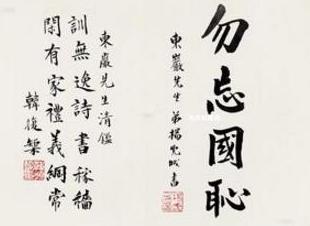 勿忘國恥
東巖先生 弟楊兆𠃔書
東巖先生清鑑
訓無逸詩書稼穡
閑有家禮義綱常
韓復榘